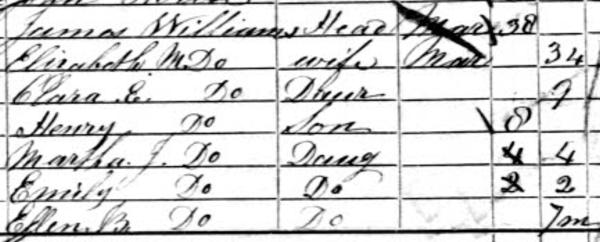 James Williams Head Mar 38
Elizabeth M. Do wife Mar 34
Clara E. Do Daur 9
Henry Do Son 8
Martha J. Do Daug 4 4
Emily Do Do 2 2
Ellen B. Do Do 7m